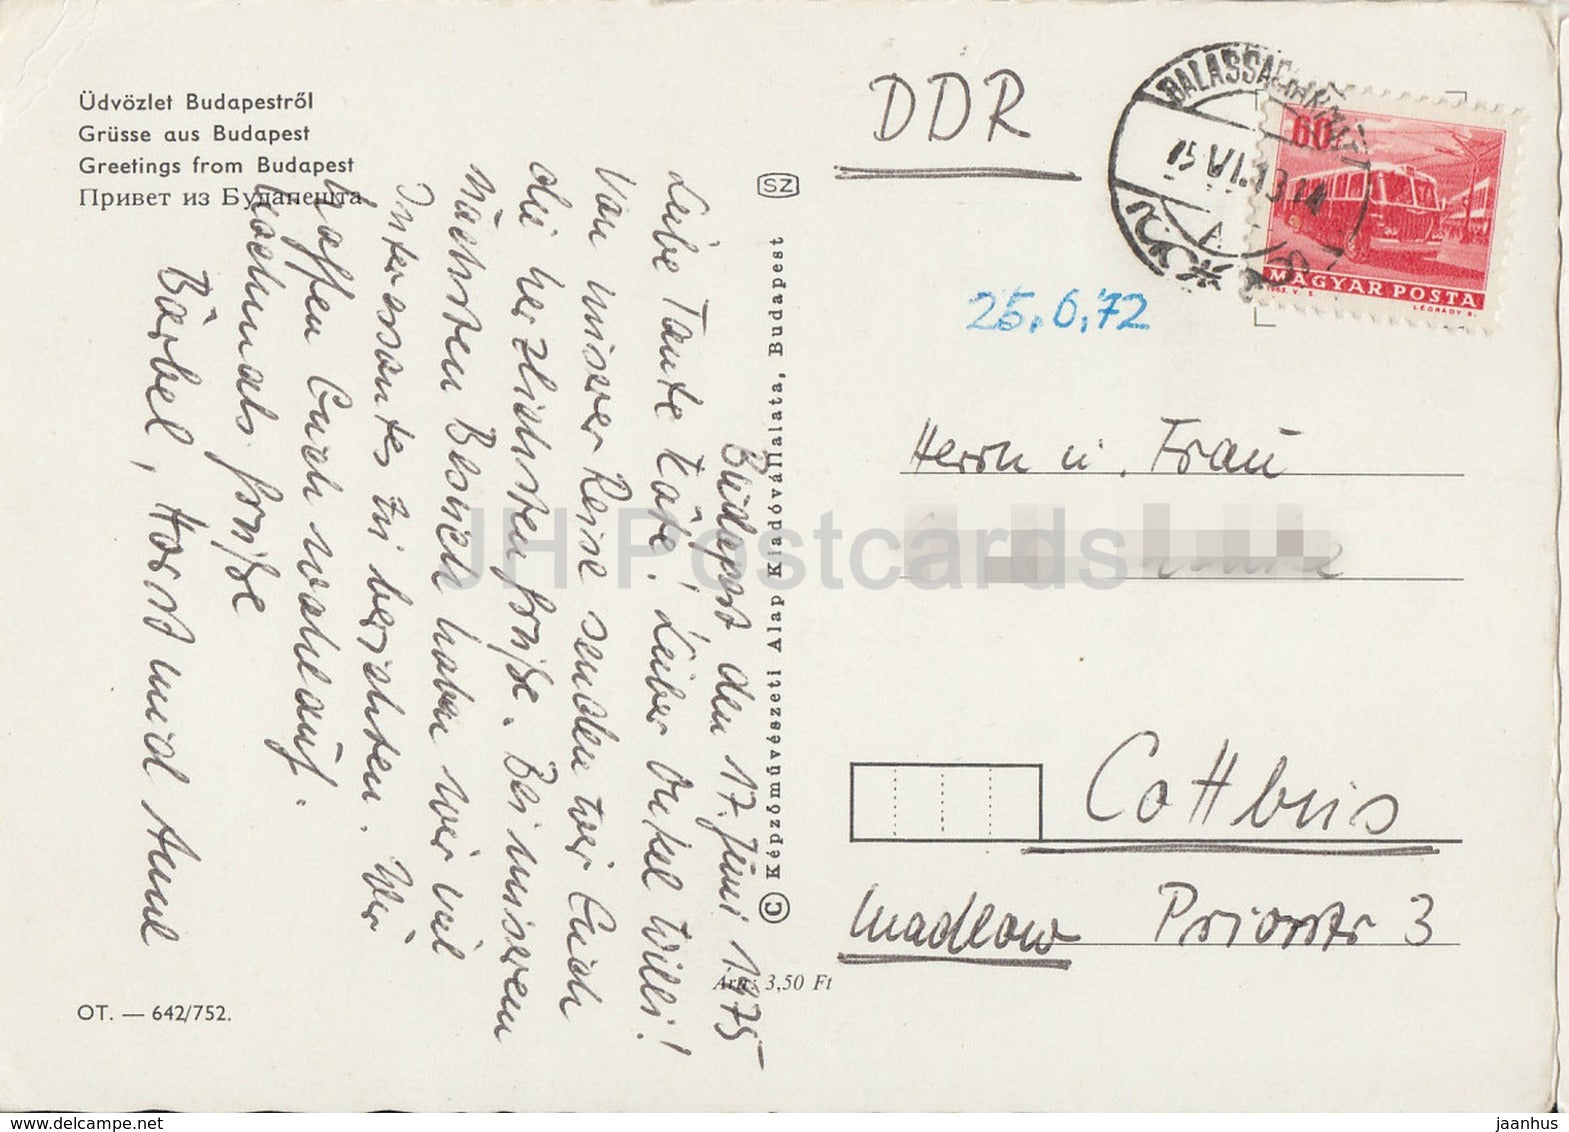 Üdvözlet Budapestről
Grüsse aus Budapest
Greetings from Budapest
Привет из Будапешта
Budapest den 17. Juni 1975
Liebe Tante Käte! Lieber Onkel Willi!
Von unserer Reise senden wir Euch
die herzlichsten Grüße. Bei unserem
nächsten Besuch haben wir viel
Interessantes zu berichten. Wir
hoffen Euch wohlauf.
Nochmals Grüße
Bärbel, Horst und Anne
OT. — 642/752.
SZ
© Képzőművészeti Alap Kiadóvállalata, Budapest
Ára: 3,50 Ft
DDR
BALASSAGYARMAT
60
MAGYAR POSTA
LÉGRÁDY S.
25.6.72
Herrn u. Frau
Cottbus
Madlow Priorstr 3
JH Postcards
jaanhus